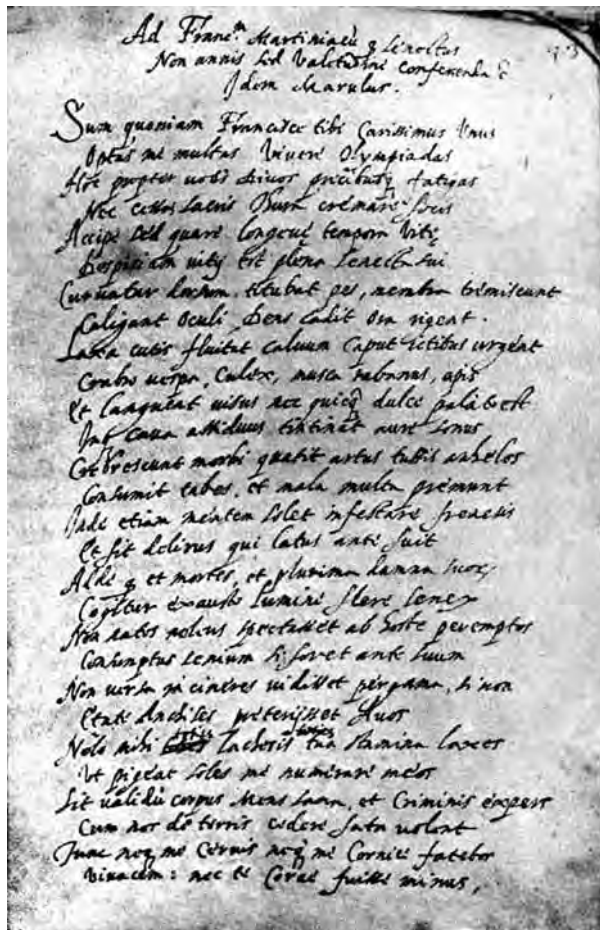 Ad Franc.m Martiniacū q Senectus
Non annis sed Valetudini conferenda ē
Idem Marulus.
Sum quoniam Francisce tibi Carissimus Unus
Optas me multas Vivere Olympiadas
Hoc propter votis divos precibusq fatigas
Nec cessas sacris thura cremare focis
Accipe sed quare longeve tempora vitę
Despiciam vitijs est plena senecta sui
Curvatur dorsum, titubat pes, membra tremiscunt
Caligant Oculi Dens cadit Ora rigent.
Laxa cutis fluitat calvum Caput ictibus urgent
Crabro vespa, Culex, musca tabanus, apis
Et Langueat visus nec quicq dulce palato est
Int cava assiduus tintinat aure sonus
Crebrescunt morbi quatit artus tussis anhelos
Consumit tabes, et mala multa premunt
Inde etiam mentem solet infestare frenesis
Et fit delirus qui catus ante fuit
Adde q et mortes, et plurima damna suorum
Cogitur exausto Lumine flere senex
Non natos Pelius spectasset ab hoste peremptos
Consumptus senium si foret ante suum
Non versa in cineres vidisset pergama, si non
Etate Anchises preterisset Avos
Nolo mihi Lachesis tua stamina laxes
Ut pigeat soles me numerare meos
Sit validū corpus Mens sana, et Criminis expers
Cum nos de terris cedere fata volent
Tunc neq me Cervis neq me Cornice fatebor
Vivacem: nec te Corve fuisse minus,